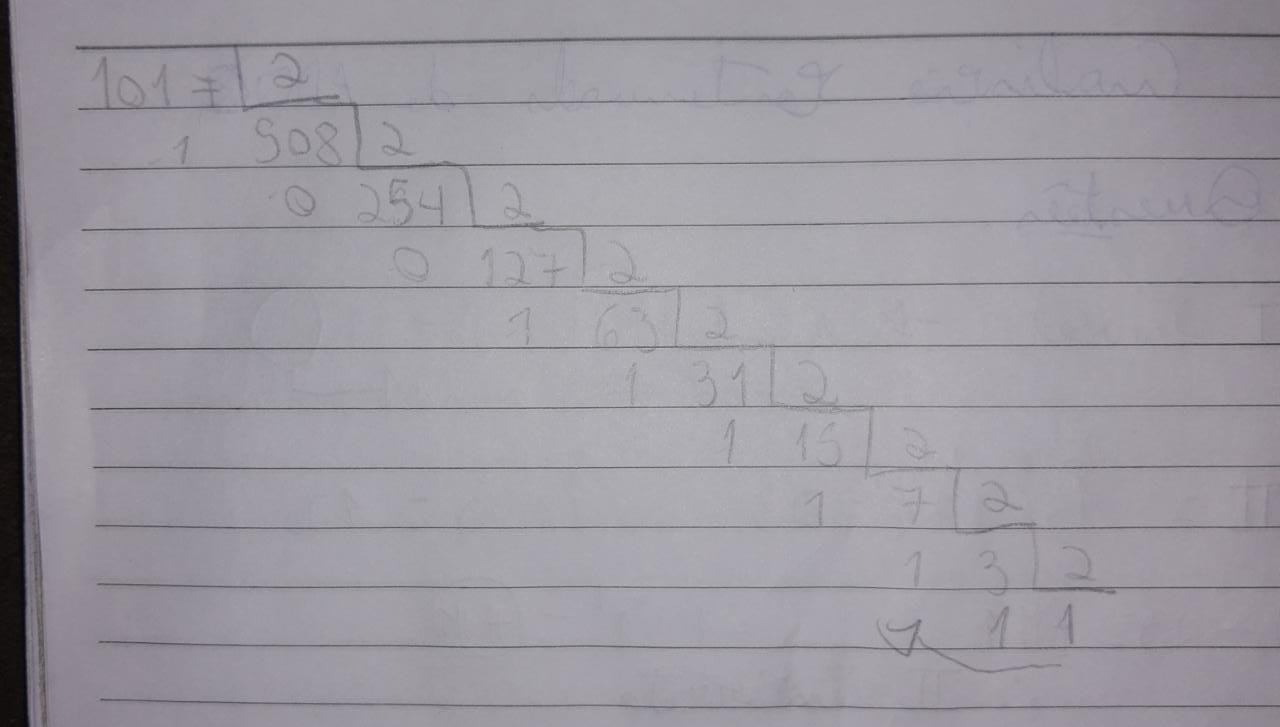 1017 2
1 508 2
0 254 2
0 127 2
1 63 2
1 31 2
1 15 2
1 7 2
1 3 2
1 1